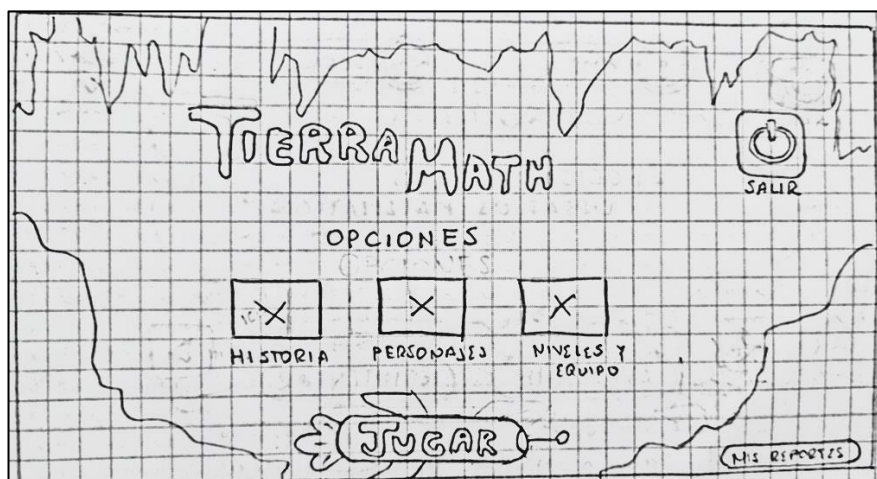 TIERRA MATH
SALIR
OPCIONES
HISTORIA
PERSONAJES
NIVELES Y
EQUIPO
JUGAR
MIS REPORTES